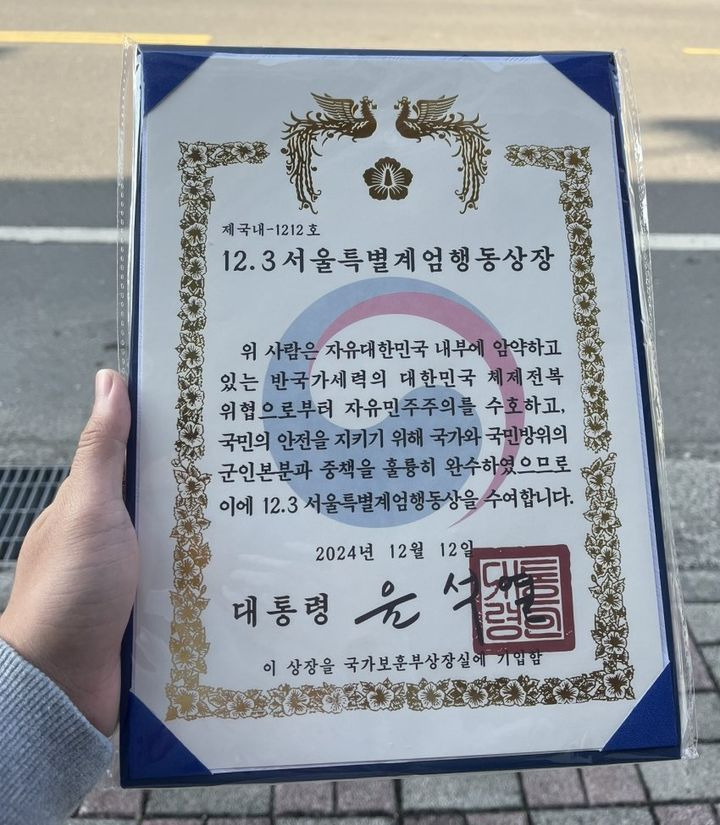 제국내-1212호
12.3서울특별계엄행동상장
위 사람은 자유대한민국 내부에 암약하고
있는 반국가세력의 대한민국 체제전복
위협으로부터 자유민주주의를 수호하고,
국민의 안전을 지키기 위해 국가와 국민방위의
군인본분과 중책을 훌륭히 완수하였으므로
이에 12.3 서울특별계엄행동상을 수여합니다.
2024년 12월 12일
대통령 윤석열
대통령의
이 상장을 국가보훈부상장실에 기입함